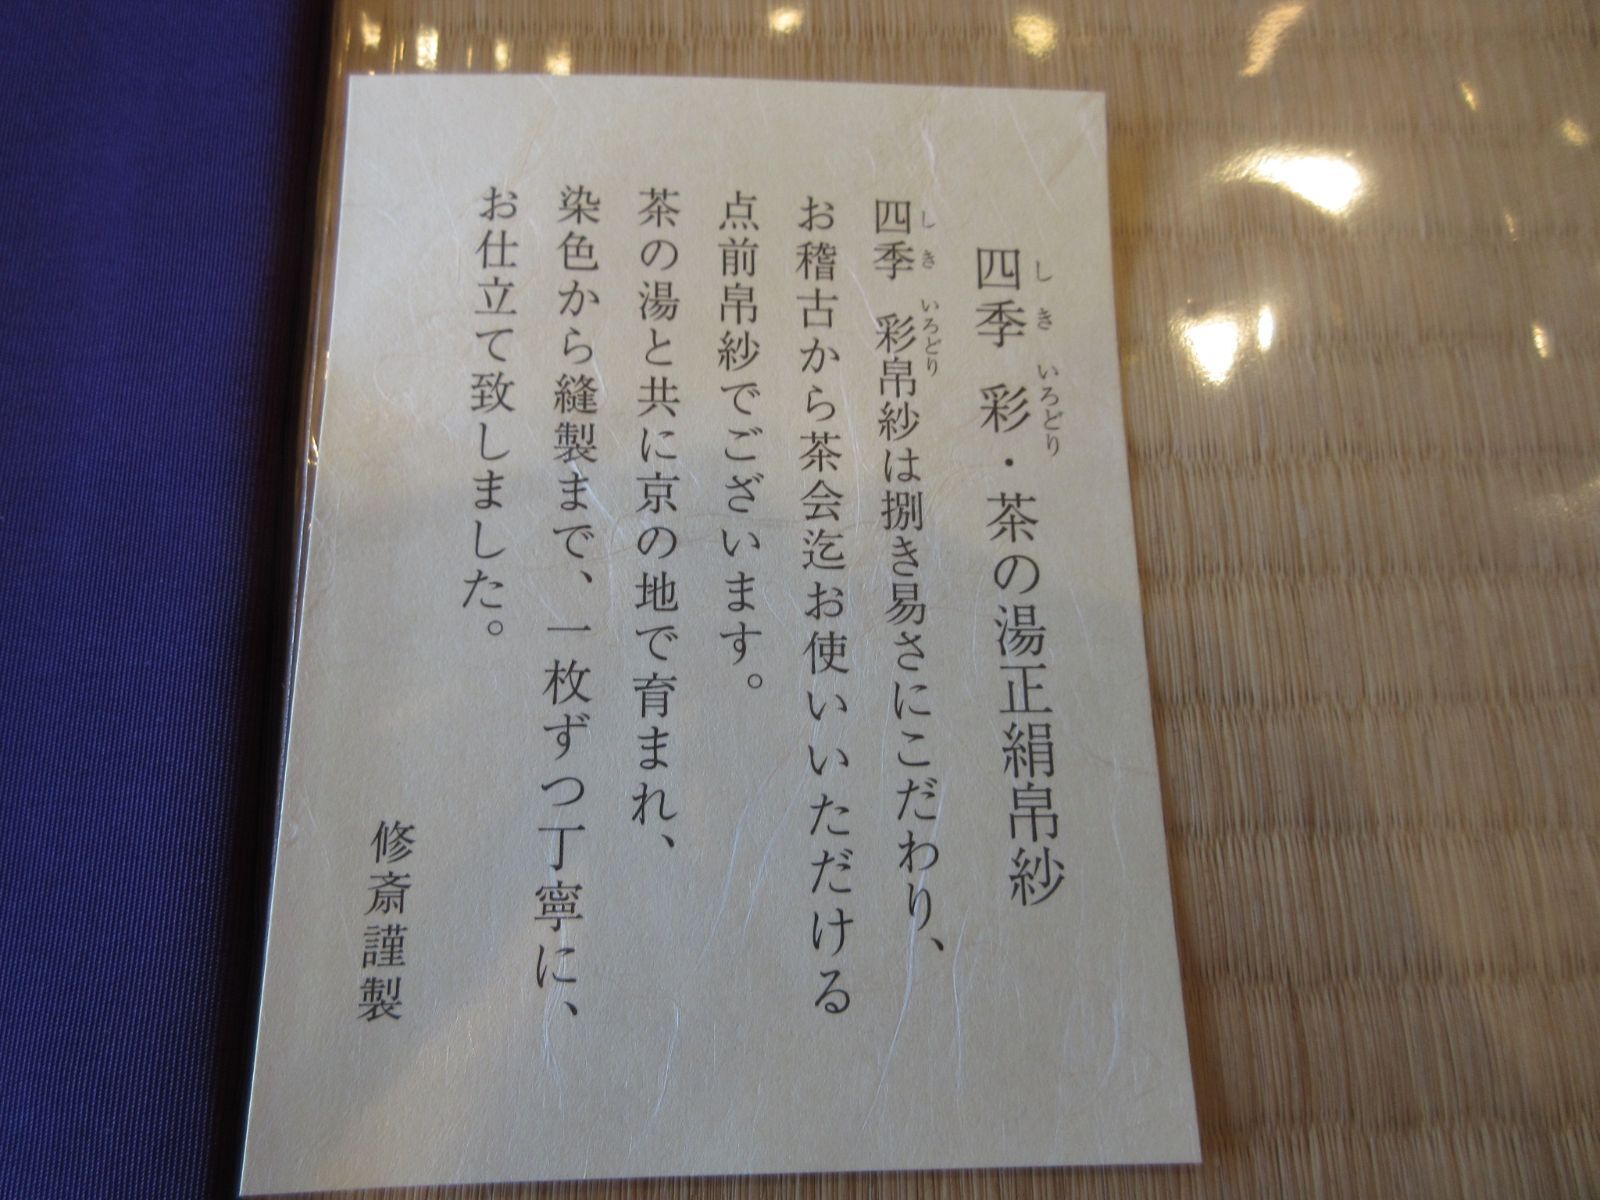 四季 彩・茶の湯正絹帛紗
しき いろどり
四季 彩帛紗は捌き易さにこだわり、
しき いろどり
お稽古から茶会迄お使いいただける
点前帛紗でございます。
茶の湯と共に京の地で育まれ、
染色から縫製まで、一枚ずつ丁寧に、
お仕立て致しました。
修斎謹製